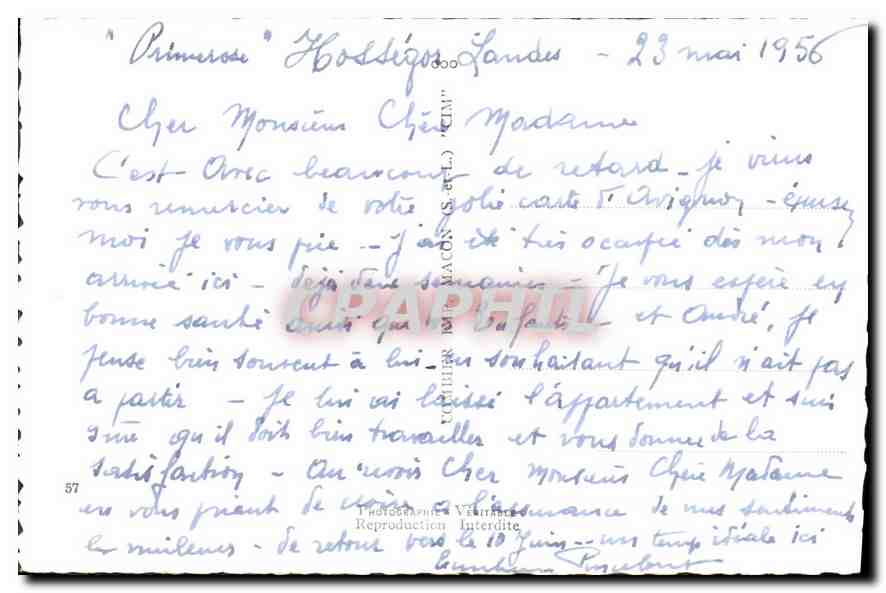 "Primerose" Hosségor Landes - 23 mai 1956
Cher Monsieur Chère Madame
C'est avec beaucoup de retard - je viens
vous remercier de votre jolie carte d'Avignon - excusez
moi je vous prie -- J'ai été très occupée dès mon
arrivée ici - déjà deux semaines - Je vous espère en
bonne santé ainsi que et André, je
pense bien souvent à lui - en souhaitant qu'il n'ait pas
a partir - Je lui ai laissé l'appartement et suis
sûre qu'il doit bien travailler et vous donner de la
satisfaction - Au revoir Cher Monsieur Chère Madame
en vous priant de croire a l'assurance de mes sentiments
les meilleurs - de retour vers le 10 Juin -- un temps idéale ici
COMBIER IMP. MACON (S.-et-L.) "CIM"
CPAPHIL
57
PHOTOGRAPHIE VÉRITABLE
Reproduction Interdite